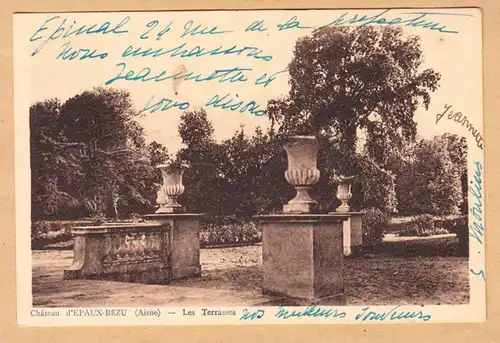 Epinal 24 rue de la prefecture
nous embrassons
Jeannette et
vous disons
Jeannette
5 Moulins
Château d'EPAUX-BÉZU (Aisne) — Les Terrasses
nos meilleurs souvenirs